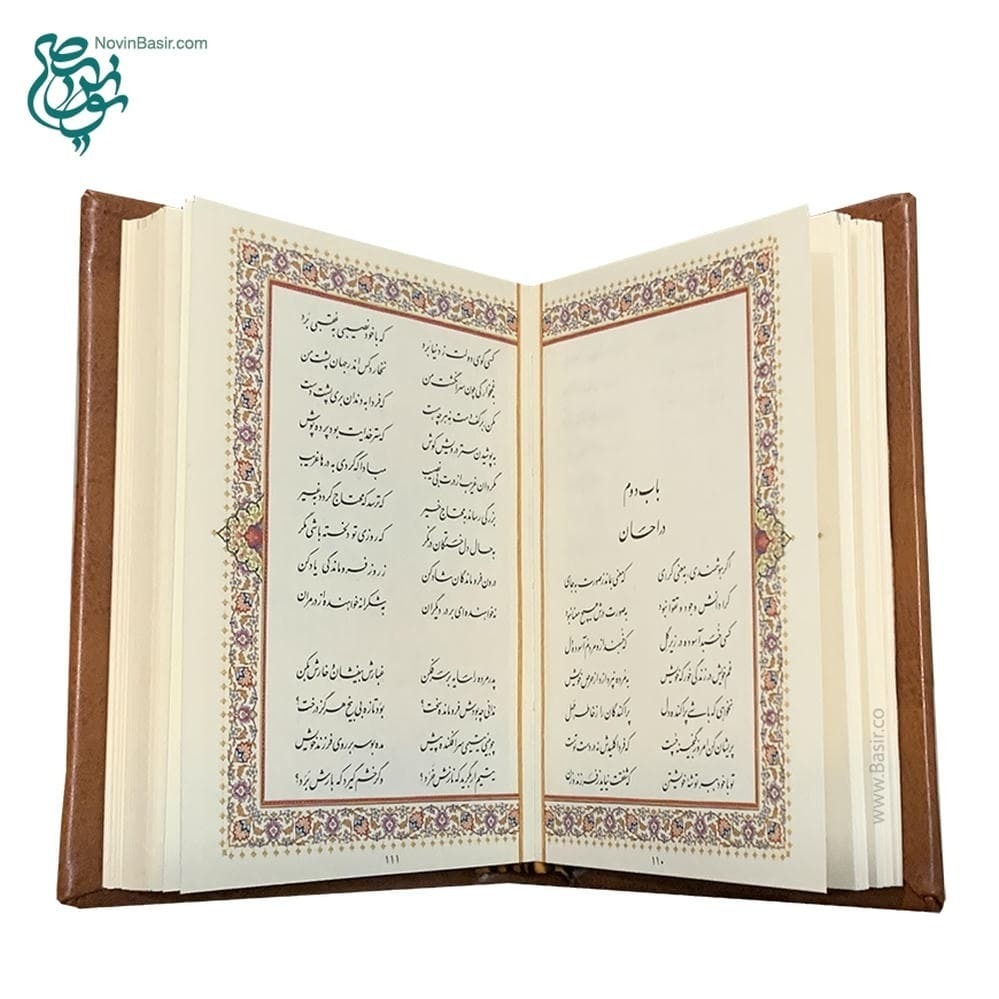 NovinBasir.com
باب دوم
در احسان
اگر هوشمندی، بمعنی گرای که معنی بماند ز صورت بجای
کرا دانش و جود و تقوا نبود بصورت درش هیچ معنا نبود
کسی خسبد آسوده در زیر گل که خسبند ازو مردم آسوده دل
غم خویش در زندگی خور که خویش به مرده نپردازد از حرص خویش
نخواهی که باشی پراکنده دل پراکندگان را ز خاطر مهل
پریشان کن امروز گنجینه چست که فردا کلیدش نه در دست تست
تو با خود ببر توشه خویشتن که شفقت نیاید ز فرزند و زن
۱۱۰
کسی گوی دولت ز دنیا برد که با خود نصیبی به عقبی برد
بغمخوارگی چون سرانگشت من نخارد کس اندر جهان پشت من
مکن بر کف دست نه هر چه هست که فردا به دندان بری پشت دست
به پوشیدن ستر درویش کوش که ستر خدایت بود پرده پوش
مگردان غریب از درت بی نصیب مبادا که گردی به درها غریب
بزرگی رساند به محتاج خیر که ترسد که محتاج گردد به غیر
به حال دل خستگان درنگر که روزی تو دلخسته باشی مگر
درون فروماندگان شاد کن ز روز فروماندگی یاد کن
نه خواهنده ای بر در دیگران بشکرانه خواهنده از در مران
پدرمرده را سایه بر سر فکن غبارش بیفشان و خارش بکن
ندانی چه بودش فرومانده سخت؟ بود تازه بی بیخ هرگز درخت؟
چو بینی یتیمی سرافکنده پیش مده بوسه بر روی فرزند خویش
یتیم ار بگرید که نازش خرد؟ و گر خشم گیرد که بارش برد؟
۱۱۱
www.Basir.co